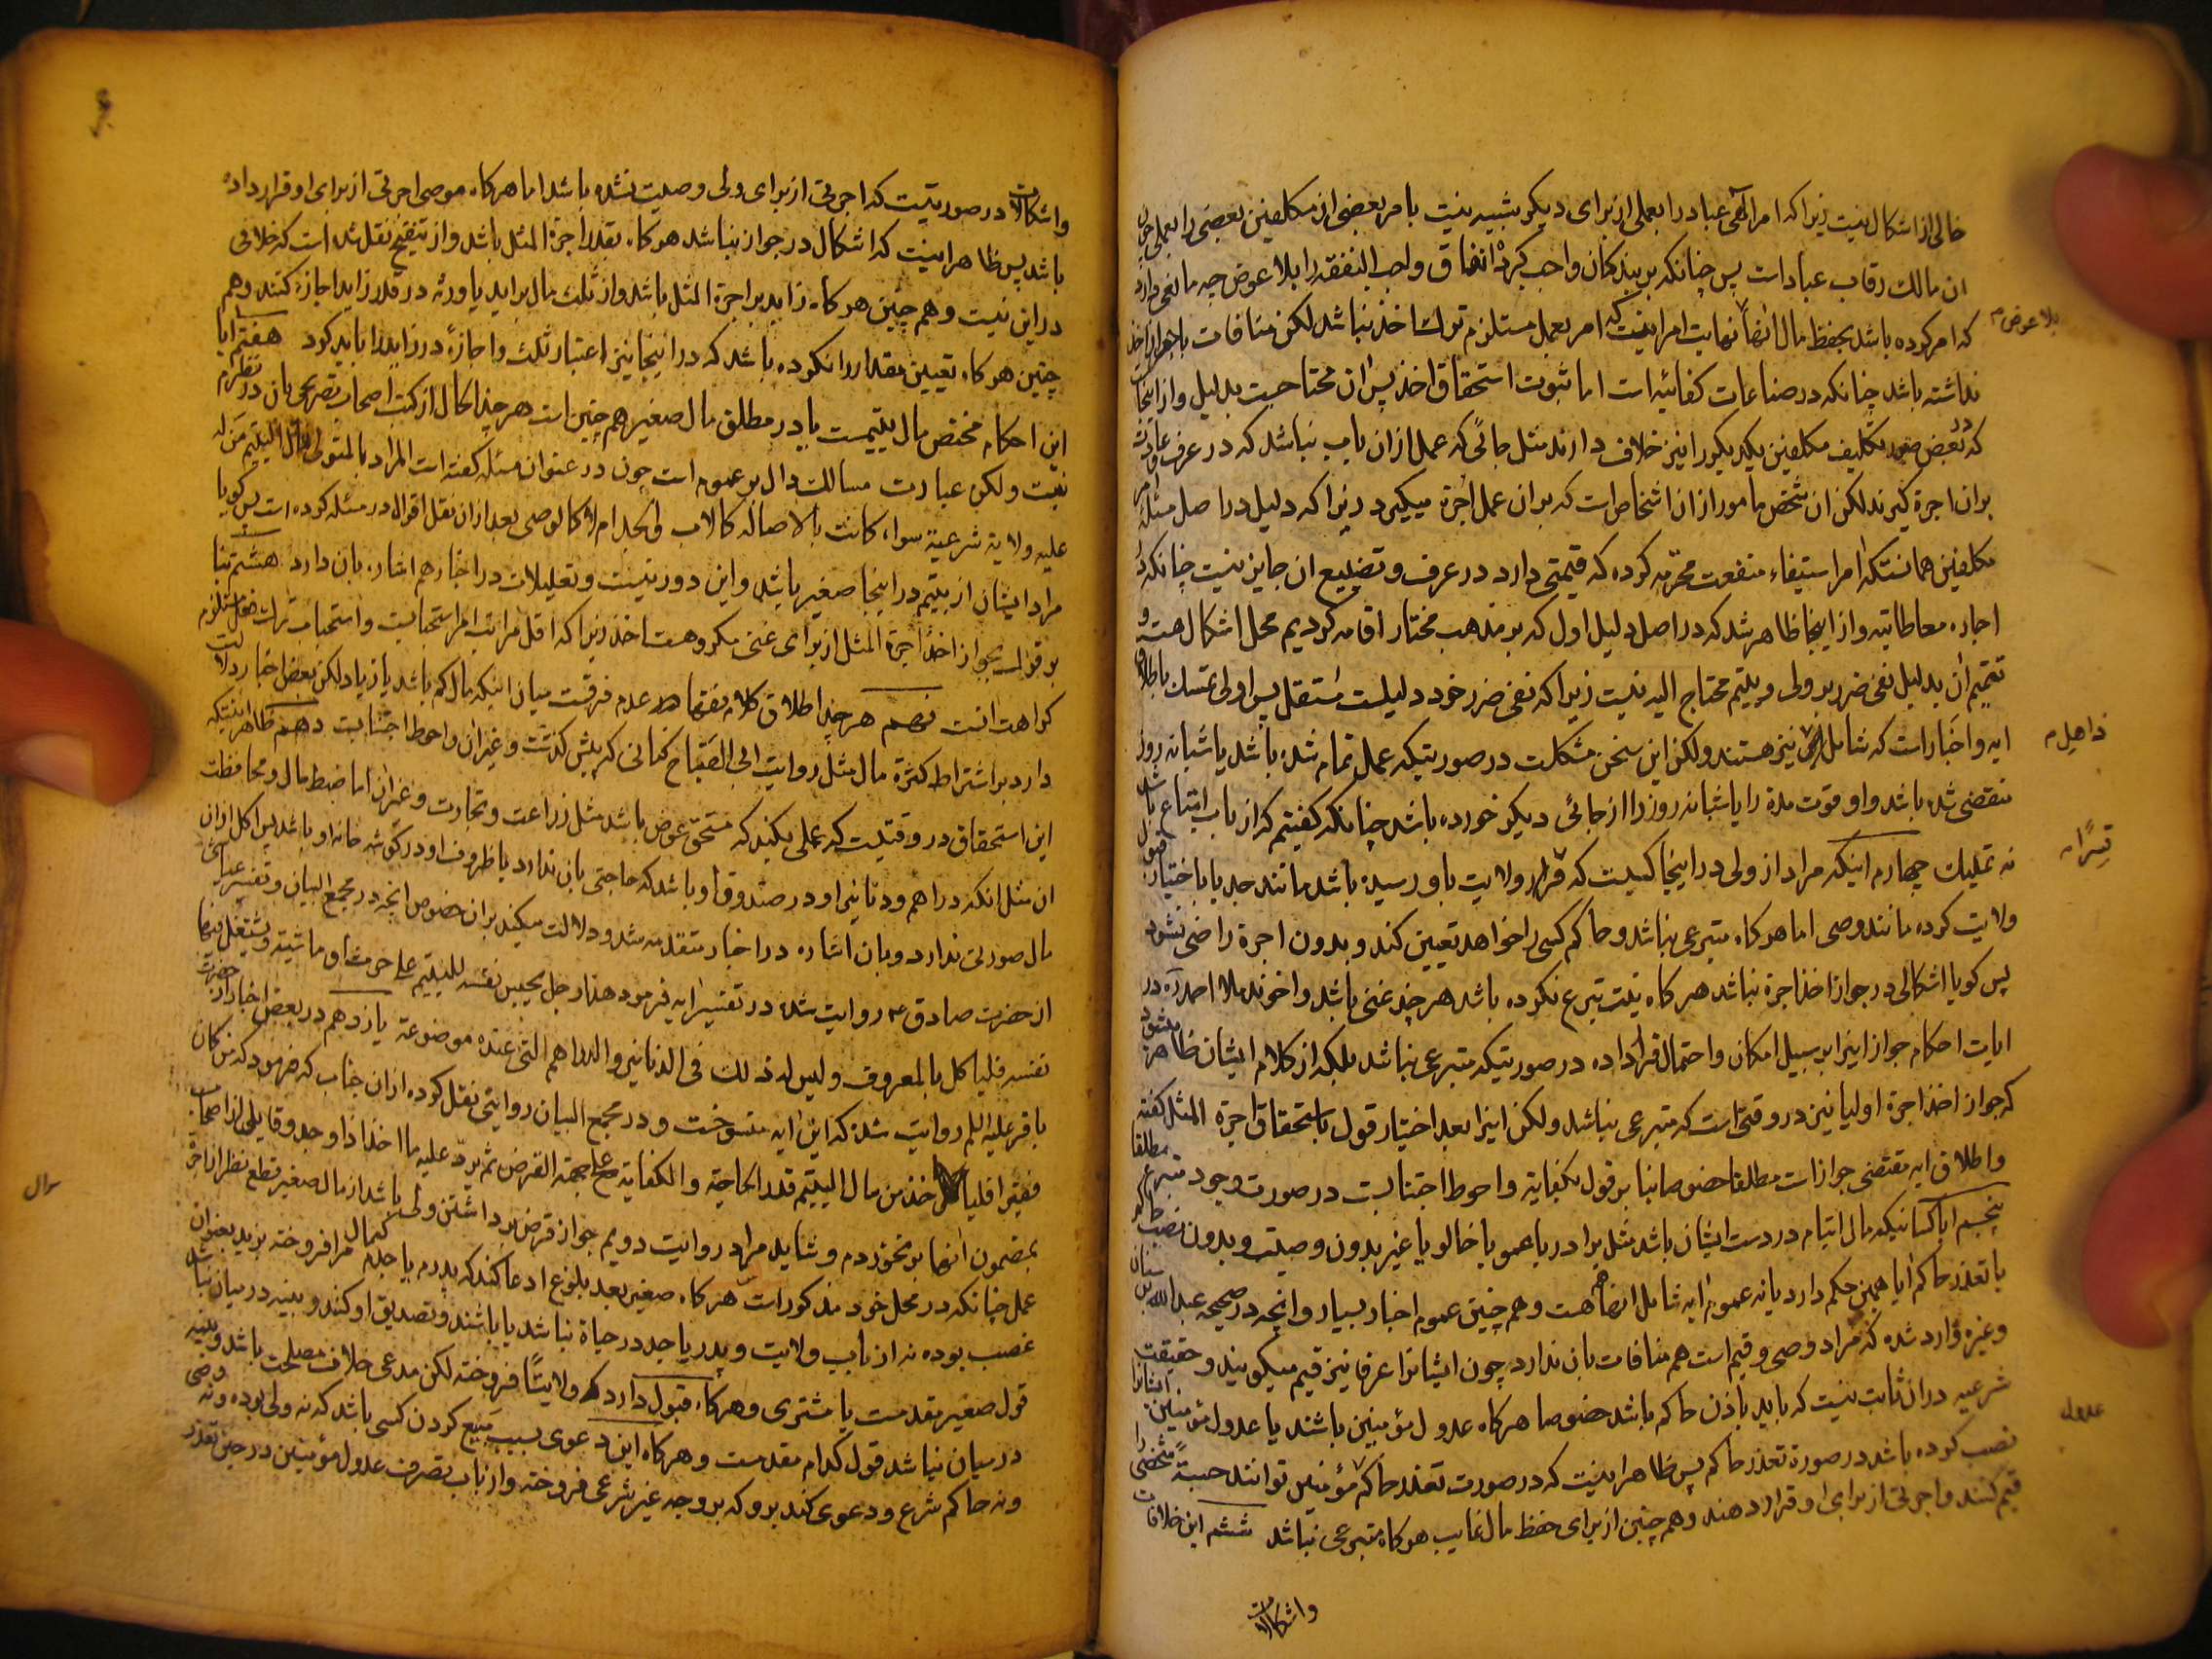 خالی از اشکال نیست زیرا که امر الهی عباد را بعملی از برای دیگر شبیه نیست بامر بعضی از مکلفین بعضی را بعملی
ان مالک رقاب عبادات پس چنانکه بر بندکان واجب کرده انفاق واجب النفقه را بلا عوض چه مانعی دارد
که امر کرده باشد بحفظ مال انها نهایت امر اینست که امر بعمل مستلزم ترک اخذ نباشد لکن منافات با جواز اخذ
بلا عوض م
نداشته باشد چنانکه در صناعات کفائیه است اما ثبوت استحقاق اخذ پس ان محتاجست بدلیل و از اینجا
که در بعض صور تکلیف مکلفین یکدیکر را نیز خلاف دارند مثل جائی که عمل از ان باب نباشد که در عرف عادت
بران اجرة کیرند لکن ان شخص مامور از ان اشخاص است که بران عمل اجرة میکیرد زیرا که دلیل در اصل مسئله
مکلفین همانستکه امر استیفاء منفعت محترمه کرده که قیمتی دارد در عرف و تضییع ان جایز نیست چنانکه در
اجاره معاطاتیه و از اینجا ظاهر شد که در اصل دلیل اول که بر مذهب مختار اقامه کردیم محل اشکال هست و
تتمیم ان بدلیل نفی ضرر بر ولی و یتیم محتاج الیه نیست زیرا که نفی ضرر خود دلیلیست مستقل پس اولی تمسک باطلاق
ایه و اخبار است که شامل نیز هستند ولکن این سخن مشکلست در صورتیکه عمل تمام نشده باشد یا شبانه روز
منقضی شده باشد و او قوت مدة را یا شبانه روز را از جائی دیکر خورده باشد چنانکه کفتیم که از باب امتاع باشد
نه تملیک چهارم اینکه مراد از ولی در اینجا کسیست که قرار ولایت باو رسیده باشد مانند جد یا باختیار قبول
ولایت کرده مانند وصی اما هرکاه متبرعی نباشد و حاکم کسی را خواهد تعیین کند و بدون اجرة راضی نشود
پس کویا اشکالی در جواز اخذ اجرة نباشد هرکاه نیت تبرع نکرده باشد هر چند غنی باشد و اخوند ملا احمد ره در
ایات احکام جواز اینرا بر سبیل امکان و احتمال قرار داده در صورتیکه متبرعی نباشد بلکه از کلام ایشان ظاهر میشود
که جواز اخذ اجرة اولیا نیز در وقتی است که متبرعی نباشد ولکن اینرا بعد اختیار قول باستحقاق اجرة المثل کفته
و اطلاق ایه مقتضی جواز است مطلقا خصوصا بنا بر قول بکفایة و احوط اجتنابست در صورت وجود متبرع مطلقا
پنجم ایا کسانیکه مال ایتام در دست ایشان باشد مثل برادر یا عمو یا خالو یا غیر بدون وصیت و بدون نصب حاکم
با تعذر حاکم ایا همین حکم دارد یا نه عموم ایه شامل انها هست و هم چنین عموم اخبار بسیار و انچه در صحیحه عبدالله بن سنان
و غیره وارد شده که مراد وصی و قیم است هم منافات بان ندارد چون ایشانرا عرفا نیز قیم میکویند و حقیقت
شرعیه در ان ثابت نیست که باید باذن حاکم باشد خصوصا هرکاه عدول مؤمنین باشند یا عدول مؤمنین ایشانرا
نصب کرده باشد در صورة تعذر حاکم پس ظاهر اینست که در صورت تعذر حاکم مؤمنین توانند حسبة شخصی را
عدول
قیم کنند و اجرتی از برای او قرار دهند و هم چنین از برای حفظ مال غایب هرکاه متبرعی نباشد ششم این خلافات
و اشکالات
و اشکالات در صورتیست که اجرتی از برای ولی وصیت نشده باشد اما هرکاه موصی اجرتی از برای او قرار داده
باشد پس ظاهر اینست که اشکال در جواز نباشد هرکاه بقدر اجرة المثل باشد و از تنقیح نقل شده است که خلافی
در این نیست و هم چنین هرکاه زاید بر اجرة المثل باشد و از ثلث مال براید یا ورثه در قدر زاید اجازه کنند و هم
چنین هرکاه تعیین مقدار را نکرده باشد که در اینجا نیز اعتبار ثلث و اجازه در زاید را باید کرد هفتم ایا
این احکام مختص مال یتیمست یا در مطلق مال صغیر هم چنین است هر چند الحال از کتب اصحاب تصریحی بان در نظرم
نیست ولکن عبارت مسالک دال بر عموم است چون در عنوان مسئله کفته است المراد بالمتولی لمال الیتیم من له
علیه ولایة شرعیة سواء کانت بالاصالة کالاب و الجد ام لا کالوصی بعد از ان نقل اقوال در مسئله کرده است پس کویا
مراد ایشان از یتیم در اینجا صغیر باشد و این دور نیست و تعلیلات در اخبار هم اشاره بان دارد هشتم بنا
بر قول بجواز اخذ اجرة المثل از برای غنی مکروهست اخذ زیرا که اقل مراتب امر استحبابست و استحباب ترک فعل مستلزم
کراهت انست نهم هر چند اطلاق کلام فقها عدم فرقست میان اینکه مال کم باشد یا زیاد لکن بعض اخبار دلالت
دارد بر اشتراط کثرة مال مثل روایت ابی الصباح کنانی که پیش کذشت و غیر ان و احوط اجتنابست دهم ظاهر اینستکه
این استحقاق در وقتیست که عملی بکند که مستحق عوض باشد مثل زراعت و تجارت و غیر ان اما ضبط مال و محافظت
ان مثل انکه دراهم و دنانیر او در صندوق او باشد که حاجتی بان ندارد یا ظروف او در کوشه خانه او باشد پس اکل از ان
مال صورتی ندارد و بان اشاره در اخبار متقدمه شد و دلالت میکند بر ان خصوص انچه در مجمع البیان و تفسیر عیاشی
از حضرت صادق ع روایت شده در تفسیر ایه فرمود هذا رجل یحبس نفسه للیتیم علی حرث او ماشیة و یشتغل فیها
نفسه فلیاکل بالمعروف و لیس له ذلک فی الدنانیر و الدراهم التی عنده موضوعة یازدهم در بعض اخبار از حضرت
باقر علیه السلم روایت شده که این ایه منسوخست و در مجمع البیان روایتی نقل کرده از ان جناب که فرمود که من کان
فقیرا فلیاخذ من مال الیتیم قدر الحاجة و الکفایة علی جهة القرض ثم یرد علیه ما اخذ اذا وجد و قایلی از اصحاب
بمضمون انها بر نخوردم و شاید مراد روایت دویم جواز قرض برداشتن ولی باشد از مال صغیر قطع نظر از اجرة
عمل چنانکه در محل خود مذکور است هرکاه صغیر بعد بلوغ ادعا کند که پدرم یا جدم مال مرا فروخته بزید بعنوان
سؤال
غصب بوده نه از باب ولایت و پدر یا جد در حیاة نباشد یا باشند و تصدیق او کنند و بینه در میان نباشد
قول صغیر مقدمست یا مشتری و هرکاه قبول دارد که ولایتًا فروخته لکن مدعی خلاف مصلحت باشد و بینه
در میان نباشد قول کدام مقدمست و هرکاه این دعوی بسبب بیع کردن کسی باشد که نه ولی بوده و نه وصی
و نه حاکم شرع و دعوی کند برو که بر وجه غیر شرعی فروخته و از باب تصرف عدول مؤمنین در حین تعذر